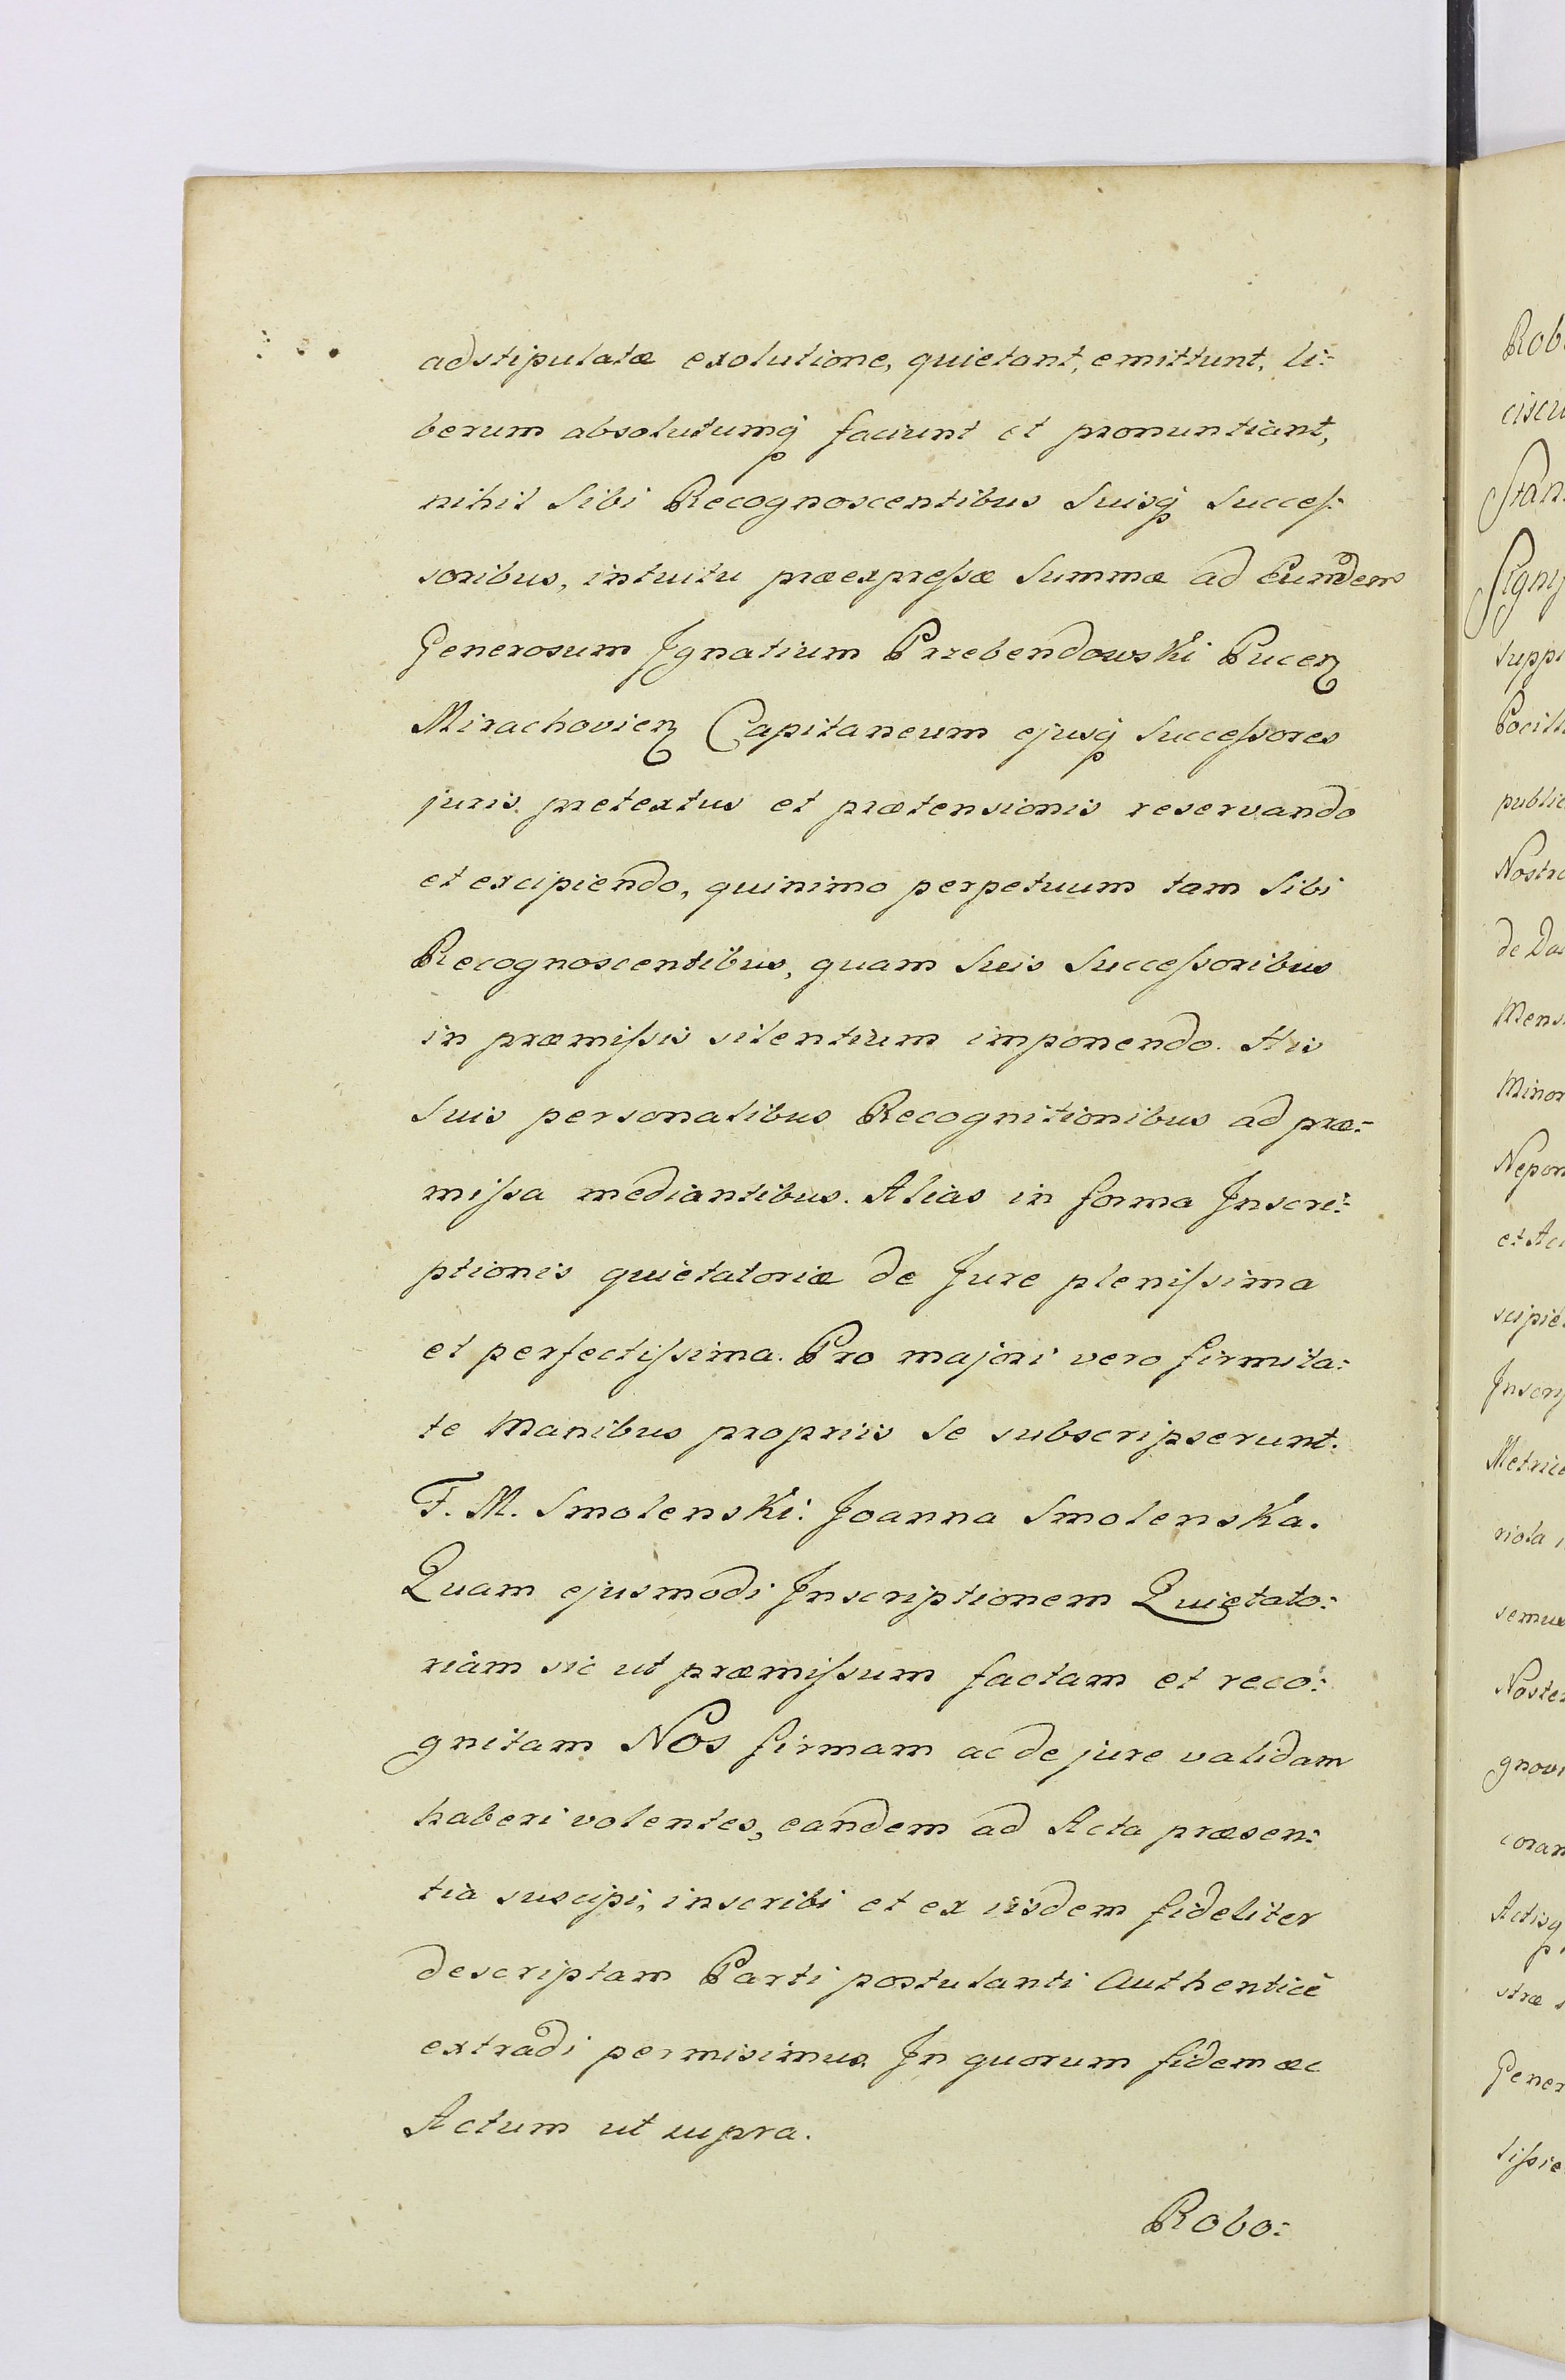 adstipulatæ exolutione, quietant, emittunt, li=
berum absolutumq̃ faciunt et pronuntiant,
nihil Sibi Recognoscentibus Suisq̃ Succeſ=
soribus, intuitu præexpreſsæ Summæ ad Eundem
Generosum Ignatium Przebendowski Pucen̄
Mirachovien̄ Capitaneum ejusq̃ Succeſsores
juris pretextus et prætensionis reservando
et excipiendo, quinimo perpetuum tam Sibi
Recognoscentibus, quam Suis Succeſsoribus
in præmiſsis silentium imponendo. His
Suis personalibus Recognitionibus ad præ=
miſsa mediantibus. Alias in forma Inscri=
ptionis quietatoriæ de Jure pleniſsima
et perfectiſsima. Pro majori vero firmita=
te Manibus propriis Se subscripserunt.
F. M. Smolenski: Joanna Smolenska.
Quam ejusmodi Inscriptionem Quietato=
riam sic ut præmiſsum factam et reco=
gnitam Nos firmam ac de jure validam
haberi volentes, eandem ad Acta præsen=
tia suscipi, inscribi et ex iisdem fideliter
descriptam Parti postulanti Authenticè
extradi permisimus. In quorum fidem ac
Actum ut supra.
Robo=